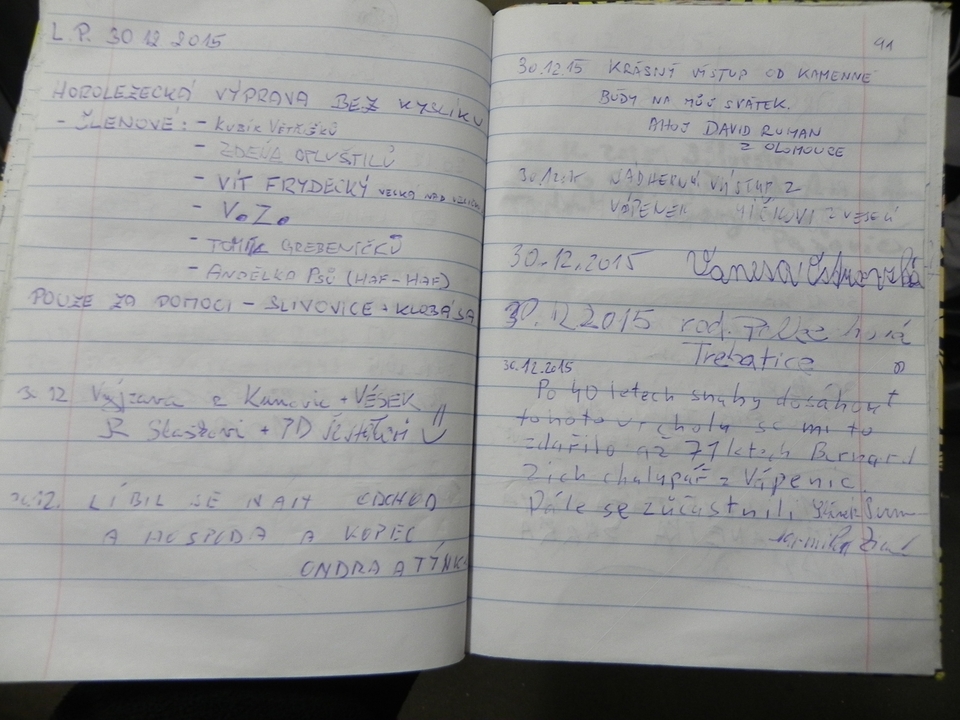 L.P. 30 12 2015
HOROLEZECKÁ VÝPRAVA BEZ KYSLÍKU
- ČLENOVÉ: - KUZIK VĚTŘÍČKŮ
- ZDEŇA OPLUŠTILŮ
- VÍT FRYDECKÝ VESKA NAD
- V.Z.
- TOMÍK GREBENÍČKŮ
- ANDĚLKA PSŮ (HAF-HAF)
POUZE ZA POMOCI - SLIVOVICE + KLOBÁSA
30 12 Výprava z Kunovic + VÉSEK
+ PD
30.12. LÍBIL SE NÁM CHCHOD
A HOSPODA A KOPEC
ONDRA A TÝNKA
91
30.12.15 KRÁSNÝ VÍSTUP OD KAMENNÉ
BÚDY NA MŮJ SVÁTEK.
AHOJ DAVID RUMAN
Z OLOMOUCE
30.12.15 NÁDHERNÝ VÝSTUP Z
VÁPENEK Z VESELÍ
30.12.2015 Vanesa Ostrovská
30.12 2015 rod.
Trebatice
30.12.2015
Po 40 letech snahy dosáhnout
tohoto vrcholu se mi to
zdařilo až 71 letech Bernard
Zich chalupář z Vápenic.
Dále se zúčastnili